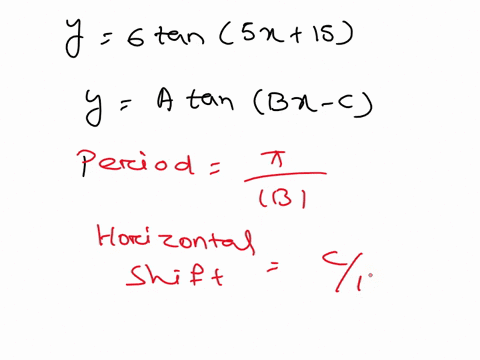 y = 6 tan (5x + 15)
y = A tan (Bx - C)
Period = π / |B|
Horizontal
Shift = C/